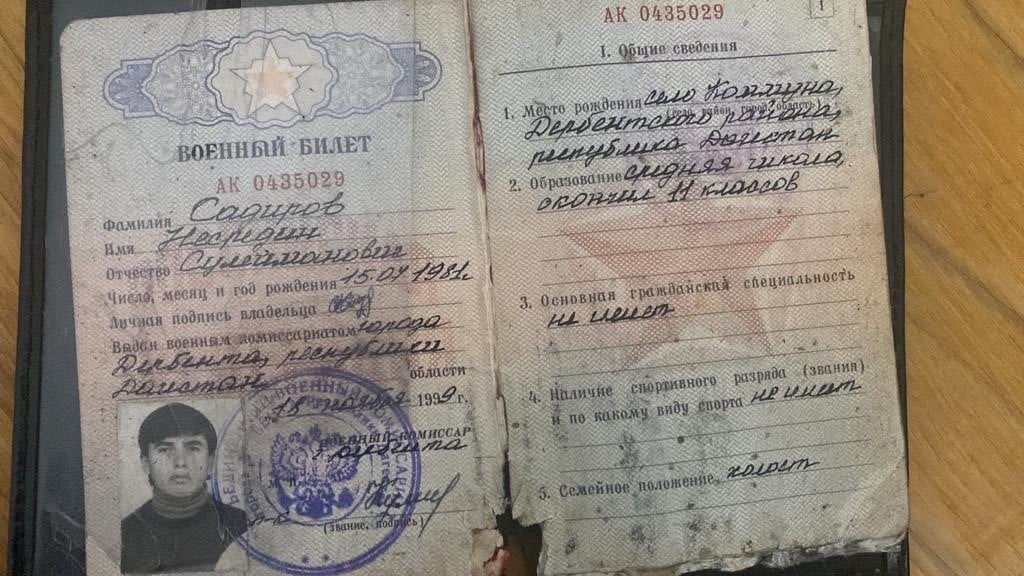 ВОЕННЫЙ БИЛЕТ
АК 0435029
Фамилия Садиров
Имя Несредин
Отчество Сулейманович
Число, месяц и год рождения 15.04 1981г.
Личная подпись владельца
Выдан военным комиссариатом города
Дербента, республики
Дагестан области
18 ноября 1999 г.
ВОЕННЫЙ КОМИССАР
г. Дербента
(звание, подпись)
АК 0435029
1
I. Общие сведения
1. Место рождения село Коммуна,
(село, район, город, область)
Дербентского района,
республика Дагестан
2. Образование средняя школа,
окончил 11 классов
3. Основная гражданская специальность
не имеет
4. Наличие спортивного разряда (звания)
и по какому виду спорта не имеет
5. Семейное положение холост